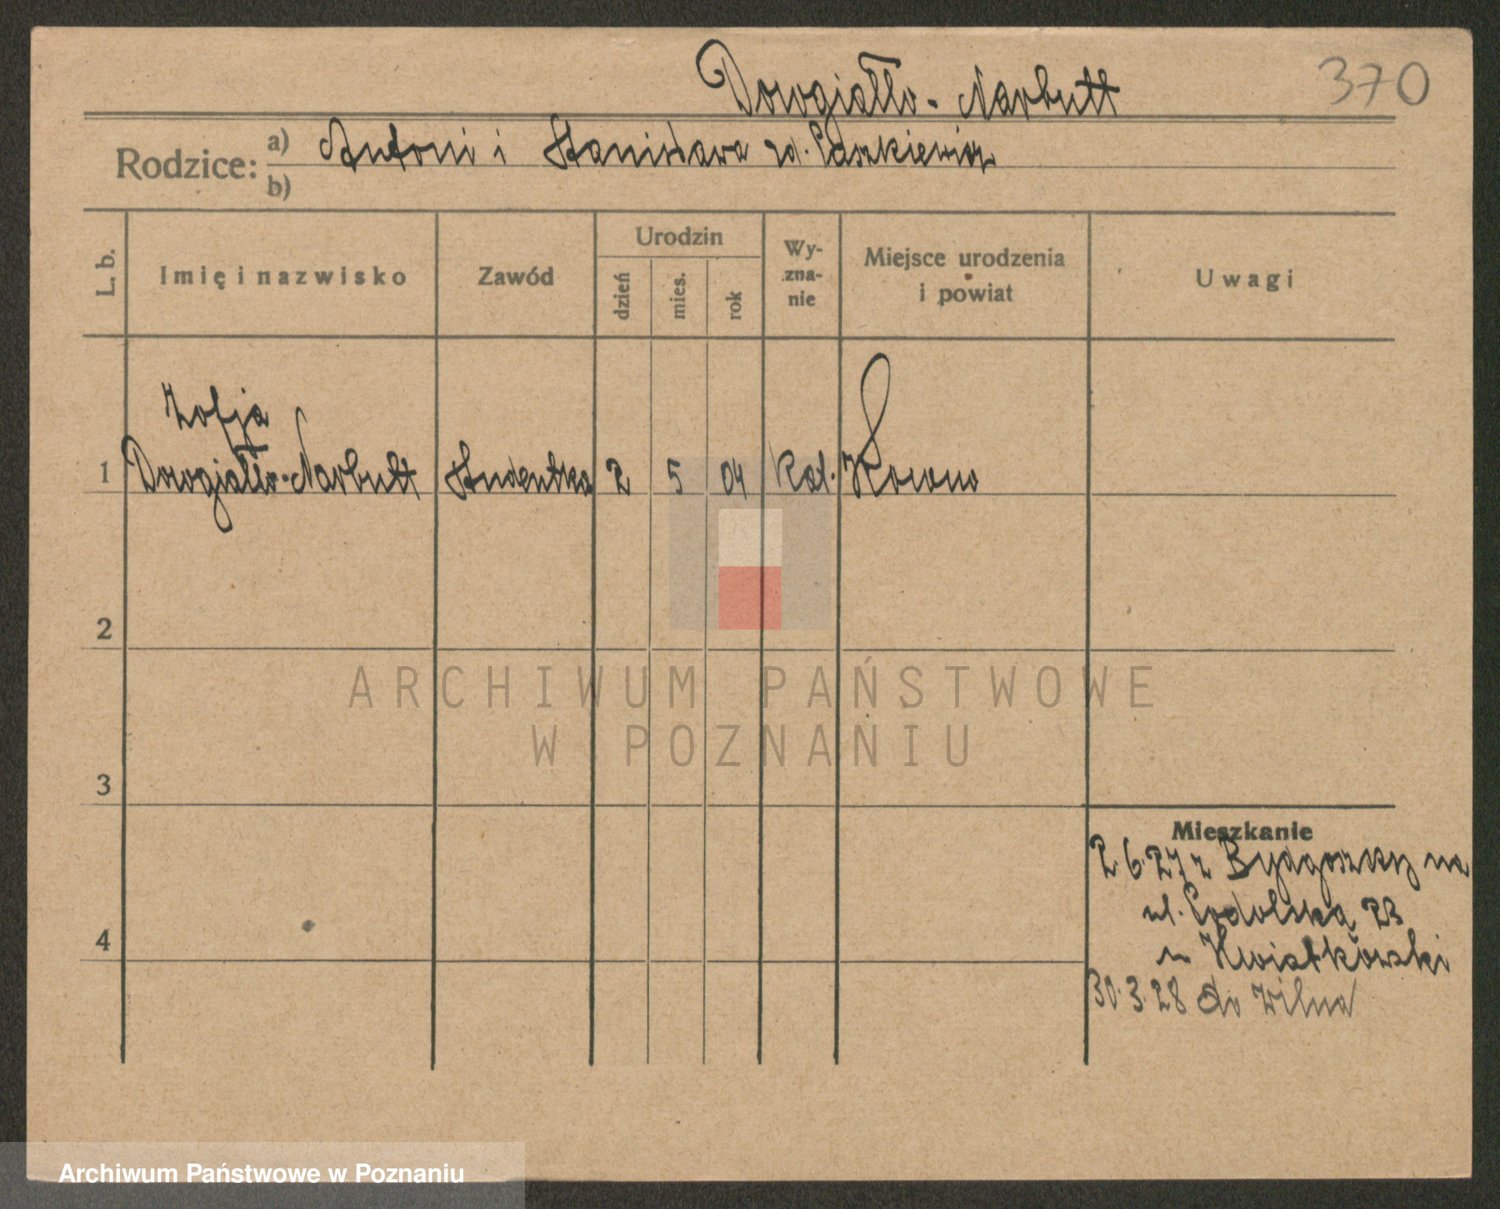 Dowgiałło-Narbutt
370
Rodzice:
a) Antoni i Stanisława zd. Paszkiewicz
b)
L. b.
Imię i nazwisko
Zawód
Urodzin
dzień
mies.
rok
Wy-
zna-
nie
Miejsce urodzenia
i powiat
Uwagi
Zofja
1 Dowgiałło-Narbutt Studentka 2 5 04 kat. Kowno
2
3
4
Mieszkanie
2.6.27 z Bydgoszczy na
ul. Podolską 23
u Kwiatkowski
30.3.28 do Wilna
ARCHIWUM PAŃSTWOWE
W POZNANIU
Archiwum Państwowe w Poznaniu